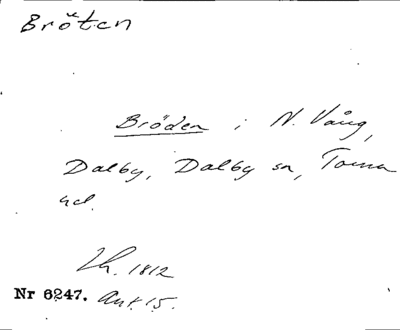 Bröten
Bröden i N. Vång,
Dalby, Dalby sn, Torna
hd.
Lh. 1812
Nr 6247. Ant. 15.